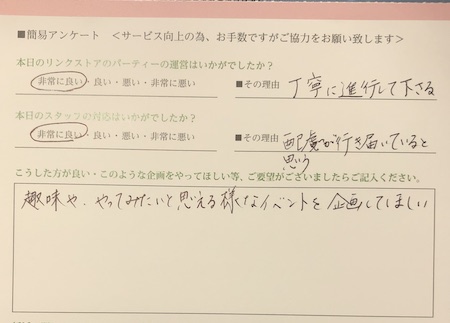 ■簡易アンケート ＜サービス向上の為、お手数ですがご協力をお願い致します＞
本日のリンクストアのパーティーの運営はいかがでしたか？
非常に良い・良い・悪い・非常に悪い ■その理由 丁寧に進行して下さる
本日のスタッフの対応はいかがでしたか？
非常に良い・良い・悪い・非常に悪い ■その理由 配慮が行き届いていると
思う
こうした方が良い・このような企画をやってほしい等、ご要望がございましたらご記入ください。
趣味や、やってみたいと思える様なイベントを企画してほしい